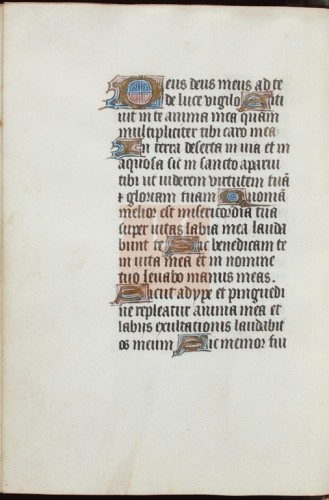 Deus deus meus ad te
de luce vigilo Siti
uit in te anima mea quam
multipliciter tibi caro mea
In terra deserta in via et in
aquosa sic in sancto aparui
tibi ut viderem virtutem tuã
⁊ gloriam tuam Quoniã
melior est misericordia tua
super vitas labia mea lauda
bunt te Sic benedicam te
in vita mea et in nomine
tuo levabo manus meas.
Sicut adype et pinguedi
ne repleatur anima mea et
labijs exultationis laudabit
os meum Sic memor fui